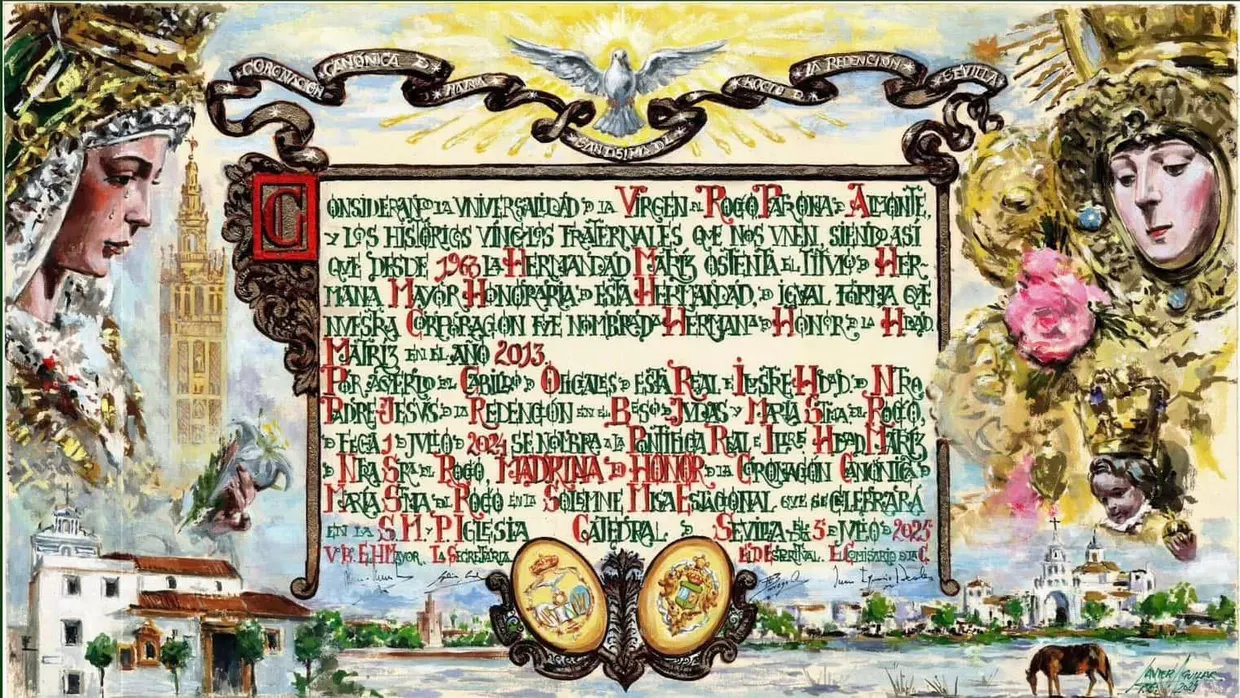 CORONACIÓN CANÓNICA D
MARIA
SANTÍSIMA DEL
ROCIO D
LA REDENCIÓN
SEVILLA
CONSIDERANDO LA VNIVERSALIDAD DE LA VIRGEN DEL ROCIO, PATRONA DE ALMONTE,
Y LOS HISTÓRICOS VÍNCVLOS FRATERNALES QVE NOS VNEN, SIENDO ASÍ
QVE DESDE 1963 LA HERMANDAD MATRIZ OSTENTA EL TITVLO DE HER-
MANA MAYOR HONORARIA DE ESTA HERMANDAD, DE IGVAL FORMA QVE
NVESTRA CORPORACIÓN FVE NOMBRADA HERMANA DE HONOR DE LA HDAD.
MATRIZ EN EL AÑO 2013.
POR ACVERDO DEL CABILDO DE OFICIALES DE ESTA REAL E ILVSTRE HDAD. DE NTRO.
PADRE JESVS DE LA REDENCIÓN EN EL BESO DE JVDAS Y MARÍA STMA. DEL ROCIO,
DE FECHA 1 DE JVLIO DE 2024 SE NOMBRA A LA PONTIFICIA REAL E ILTRE. HDAD. MATRIZ
DE NTRA. SRA. DEL ROCIO, MADRINA DE HONOR DE LA CORONACIÓN CANÓNICA DE
MARÍA STMA. DEL ROCIO EN LA SOLEMNE MISA ESTACIONAL QVE SE CELEBRARÁ
EN LA S.M. Y P. IGLESIA CATEDRAL DE SEVILLA EL 5 DE JVLIO DE 2025
V.B. EL H. MAYOR. LA SECRETARIA. EL D. ESPIRITUAL. EL COMISARIO DE LA C.
JAVIER AGUILAR
2024